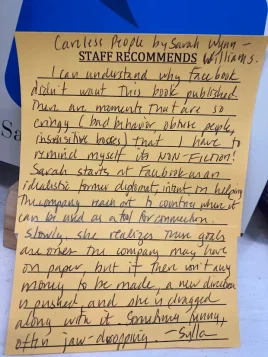 Careless People by Sarah Wynn-
Williams.
STAFF RECOMMENDS
I can understand why Facebook
didn't want this book published
There are moments that are so
crazy (bad behavior, obtuse people,
insensitive bosses) that I have to
remind myself its NON-FICTION!
Sarah starts at Facebook as an
idealistic former diplomat, intent on helping
the company reach out to country where it
can be used as a tool for connection.
slowly, she realizes these goals
are ones the company may have
on paper, but if there isn't any
money to be made, a new direction
is pushed, and she is dragged
along with it. Sometimes funny,
often jaw-dropping. -Sylla
Sa